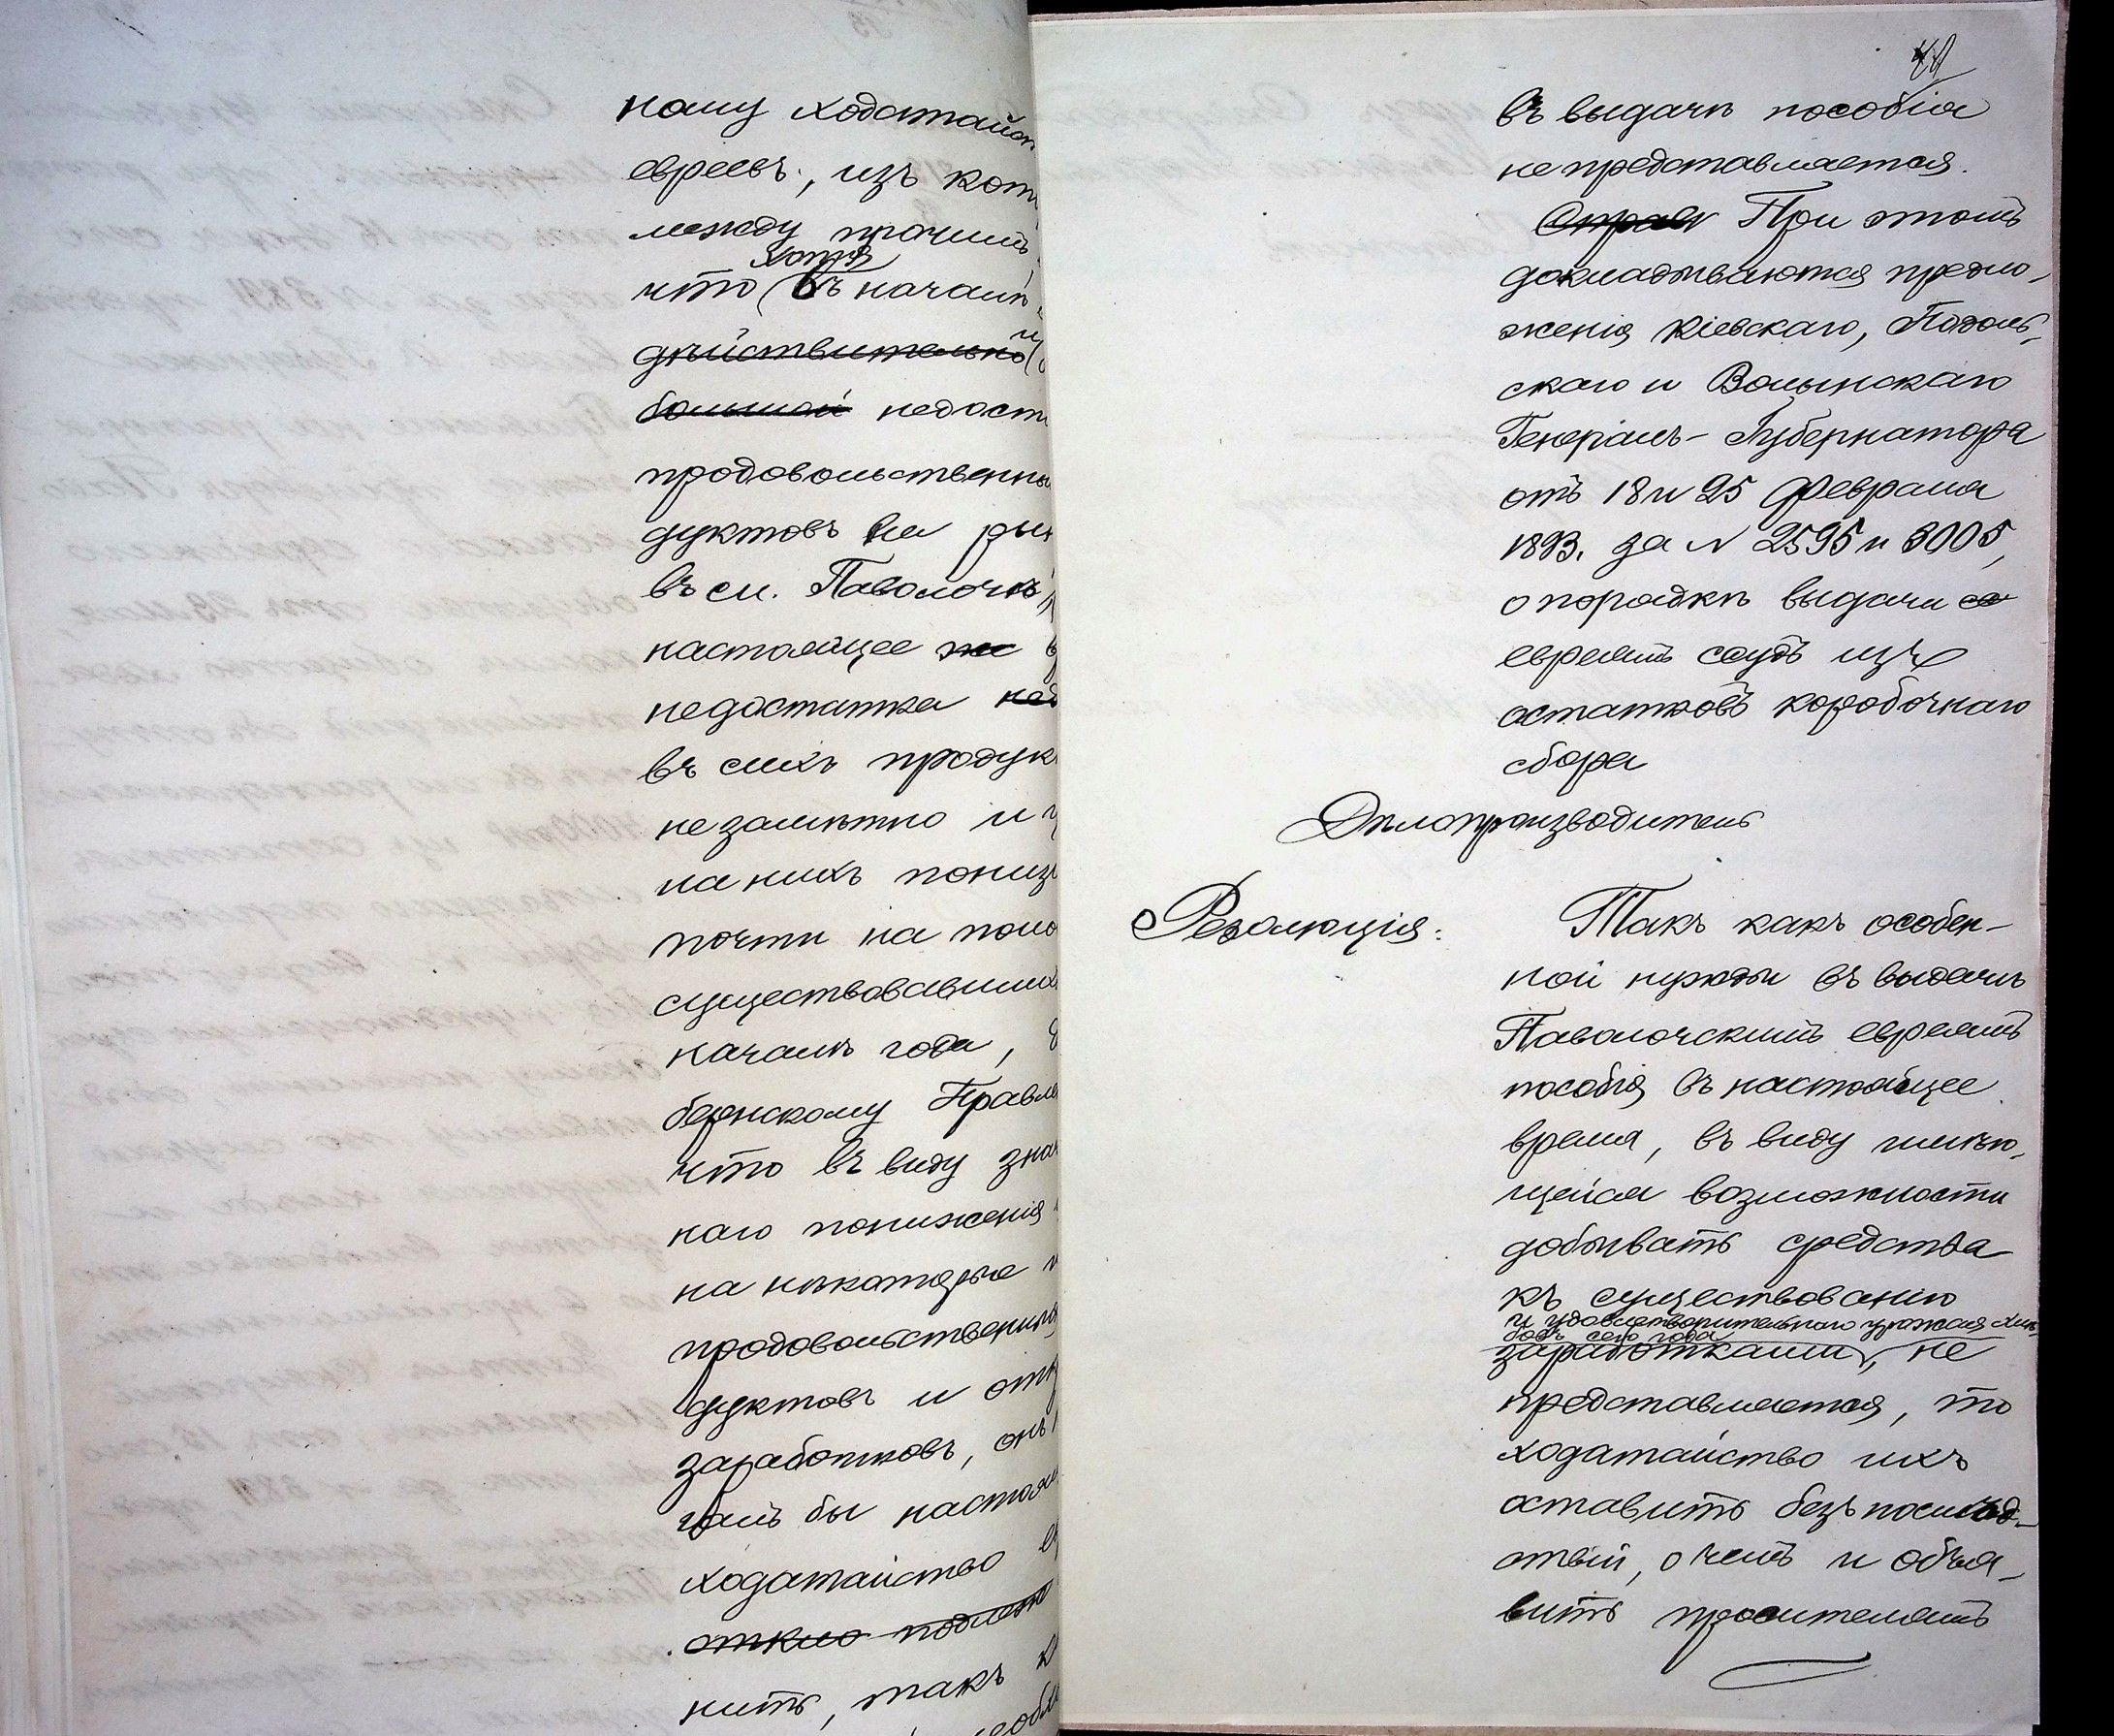 ному ходатайст
евреевъ, изъ кот
между прочимъ
хотя
что въ началѣ
и
дѣйствительно
большой недост
продовольственны
дуктовъ на рын
въ м. Паволочѣ
настоящее же в
недостатка
въ сихъ продук
незамѣтно и ц
на нихъ пониз
почти на поло
существовавших
началѣ года,
бернскому Правле
что въ виду знач
наго пониженія
на нѣкоторые
продовольственны
дуктовъ и отк
заработковъ, онъ
галъ бы настоя
ходатайство ев
откло подлежа
нить, такъ к
необх
въ выдачѣ пособія
не представляется.
Справк При этомъ
докладываются предло-
женія Кіевскаго, Подоль-
скаго и Волынскаго
Генералъ-Губернатора
отъ 18 и 25 февраля
1893. за № 2595 и 3005,
о порядкѣ выдачи
евреямъ ссудъ изъ
остатковъ коробочнаго
сбора
Дѣлопроизводитель
Резолюція:
Такъ какъ особен-
ной нужды въ выдачѣ
Паволочскимъ евреямъ
пособія въ настоящее
время, въ виду имѣю-
щейся возможности
добывать средства
къ существованію
и удовлетворительнаго урожая хлѣ-
бовъ сего года
заработками, не
представляется, то
ходатайство ихъ
оставить безъ послѣд-
ствій, о чемъ и объя-
вить просителямъ